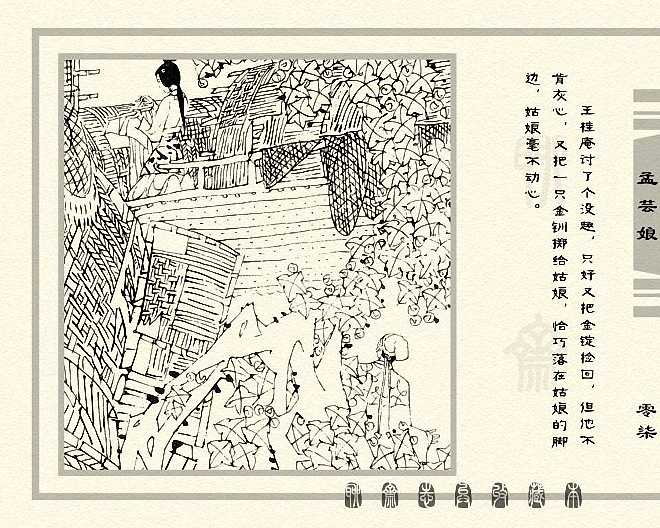 孟芸娘
零柒
王桂庵讨了个没趣，只好又把金锭捡回，但他不
肯灰心，又把一只金钏掷给姑娘，恰巧落在姑娘的脚
边，姑娘毫不动心。